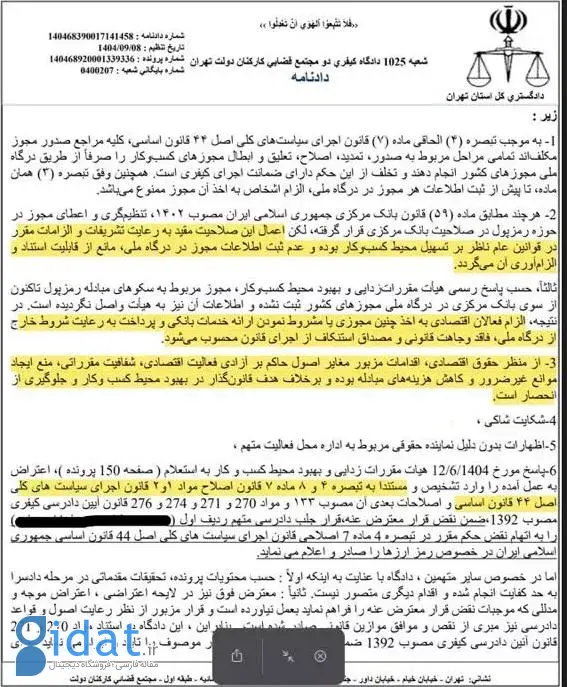 «فَلَا تَتَّبِعُوا الْهَوَىٰ أَنْ تَعْدِلُوا»
شماره دادنامه : 140468390017141458
تاریخ تنظیم : 1404/09/08
شماره پرونده : 140468920001339336
شماره بایگانی شعبه : 0400207
شعبه 1025 دادگاه کیفری دو مجتمع قضایی کارکنان دولت تهران
دادنامه
دادگستری کل استان تهران
زیر :
1- به موجب تبصره (۴) الحاقی ماده (۷) قانون اجرای سیاست‌های کلی اصل ۴۴ قانون اساسی، کلیه مراجع صدور مجوز
مکلف‌اند تمامی مراحل مربوط به صدور، تمدید، اصلاح، تعلیق و ابطال مجوزهای کسب‌وکار را صرفاً از طریق درگاه
ملی مجوزهای کشور انجام دهند و تخلف از این حکم دارای ضمانت اجرای کیفری است. همچنین وفق تبصره (۳) همان
ماده، تا پیش از ثبت اطلاعات هر مجوز در درگاه ملی، الزام اشخاص به اخذ آن مجوز ممنوع می‌باشد.
2- هرچند مطابق ماده (۵۹) قانون بانک مرکزی جمهوری اسلامی ایران مصوب ۱۴۰۲، تنظیم‌گری و اعطای مجوز در
حوزه رمزپول در صلاحیت بانک مرکزی قرار گرفته، لکن اعمال این صلاحیت مقید به رعایت تشریفات و الزامات مقرر
در قوانین عام ناظر بر تسهیل محیط کسب‌وکار بوده و عدم ثبت اطلاعات مجوز در درگاه ملی، مانع از قابلیت استناد و
الزام‌آوری آن می‌گردد.
ثالثاً، حسب پاسخ رسمی هیأت مقررات‌زدایی و بهبود محیط کسب‌وکار، مجوز مربوط به سکوهای مبادله رمزپول تاکنون
از سوی بانک مرکزی در درگاه ملی مجوزهای کشور ثبت نشده و اطلاعات آن نیز به هیأت واصل نگردیده است. در
نتیجه، الزام فعالان اقتصادی به اخذ چنین مجوزی یا مشروط نمودن ارائه خدمات بانکی و پرداخت به رعایت شروط خارج
از درگاه ملی، فاقد وجاهت قانونی و مصداق استنکاف از اجرای قانون محسوب می‌شود.
3- از منظر حقوق اقتصادی، اقدامات مزبور مغایر اصول حاکم بر آزادی فعالیت اقتصادی، شفافیت مقرراتی، منع ایجاد
موانع غیرضرور و کاهش هزینه‌های مبادله بوده و برخلاف هدف قانون‌گذار در بهبود محیط کسب وکار و جلوگیری از
انحصار است.
4-شکایت شاکی ،
5-اظهارات بدون دلیل نماینده حقوقی مربوط به اداره محل فعالیت متهم ،
6-پاسخ مورخ 12/6/1404 هیات مقررات زدایی و بهبود محیط کسب و کار به استعلام ( صفحه 150 پرونده )، اعتراض
به عمل آمده را وارد تشخیص و مستندا به تبصره ۴ و ۸ ماده ۷ قانون اصلاح مواد ۱و۲ قانون اجرای سیاست های کلی
اصل ۴۴ قانون اساسی و اصلاحات بعدی آن مصوب ۱۳۳ و مواد 270 و 271 و 274 و 276 قانون آیین دادرسی کیفری
مصوب 1392،ضمن نقض قرار معترض عنه،قرار جلب دادرسی متهم ردیف اول (
را به اتهام نقض حکم مقرر در تبصره 4 ماده 7 اصلاحی قانون اجرای سیاست های کلی اصل 44 قانون اساسی جمهوری
اسلامی ایران در خصوص رمز ارزها را صادر و اعلام می نماید.
اما در خصوص سایر متهمین ، دادگاه با عنایت به اینکه اولاً : حسب محتویات پرونده، تحقیقات مقدماتی در مرحله دادسرا
به حد کفایت انجام شده و اقدام دیگری متصور نیست. ثانیاً : معترض فوق نیز در لایحه اعتراضی ، اعتراض موجه و
مدللی که موجبات نقض قرار معترض عنه را فراهم نماید بعمل نیاورده است و قرار مزبور از نظر رعایت اصول و قواعد
دادرسی نیز مبری از نقص و موافق موازین قانونی صادر شده است. بنابراین ، این دادگاه به استناد
قانون آئین دادرسی کیفری مصوب 1392 موصوف را
gidat
مقاله فارسی؛ فروشگاه دیجیتال
نشانی: تهران - خیابان خیام - خیابان داور - طبقه اول - مجتمع قضایی کارکنان دولت